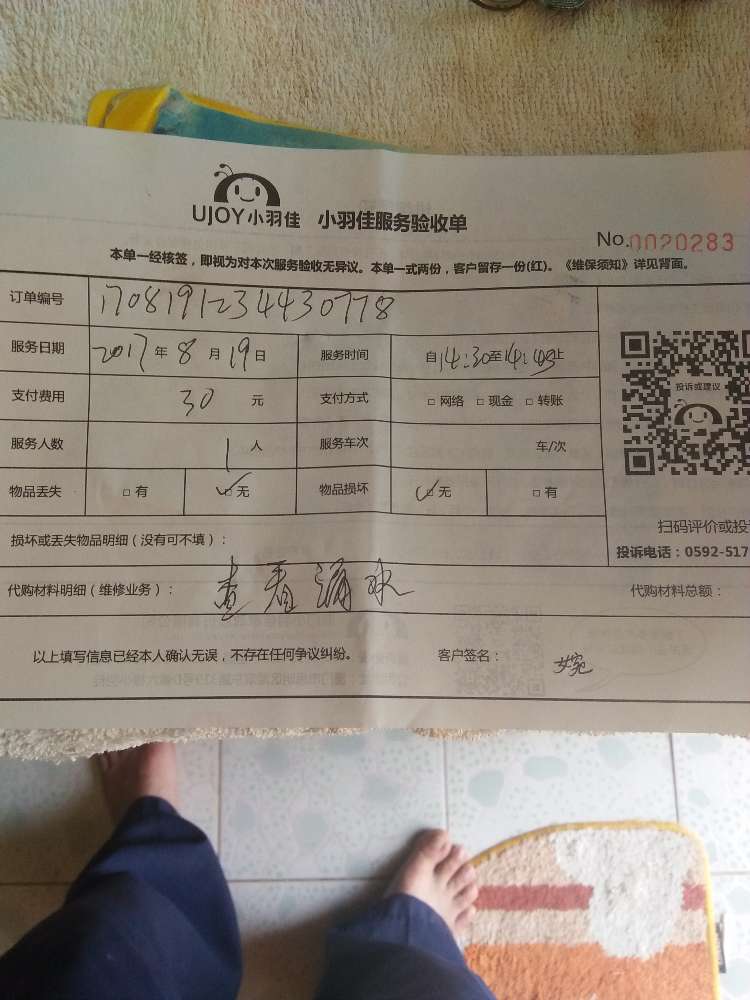 UJOY小羽佳 小羽佳服务验收单
No.0020283
本单一经核签，即视为对本次服务验收无异议。本单一式两份，客户留存一份(红)。《维保须知》详见背面。
订单编号 170819123443077​8
服务日期 2017年8月19日 服务时间 自14:30至14:40止
支付费用 30 元 支付方式 □ 网络 □ 现金 □ 转账
投诉或建议
服务人数 1 人 服务车次 车/次
物品丢失 □ 有 ☑ 无 物品损坏 ☑ 无 □ 有
扫码评价或投
损坏或丢失物品明细（没有可不填）：
投诉电话：0592-517
代购材料明细（维修业务）： 查看漏水 代购材料总额：
以上填写信息已经本人确认无误，不存在任何争议纠纷。 客户签名： 婉